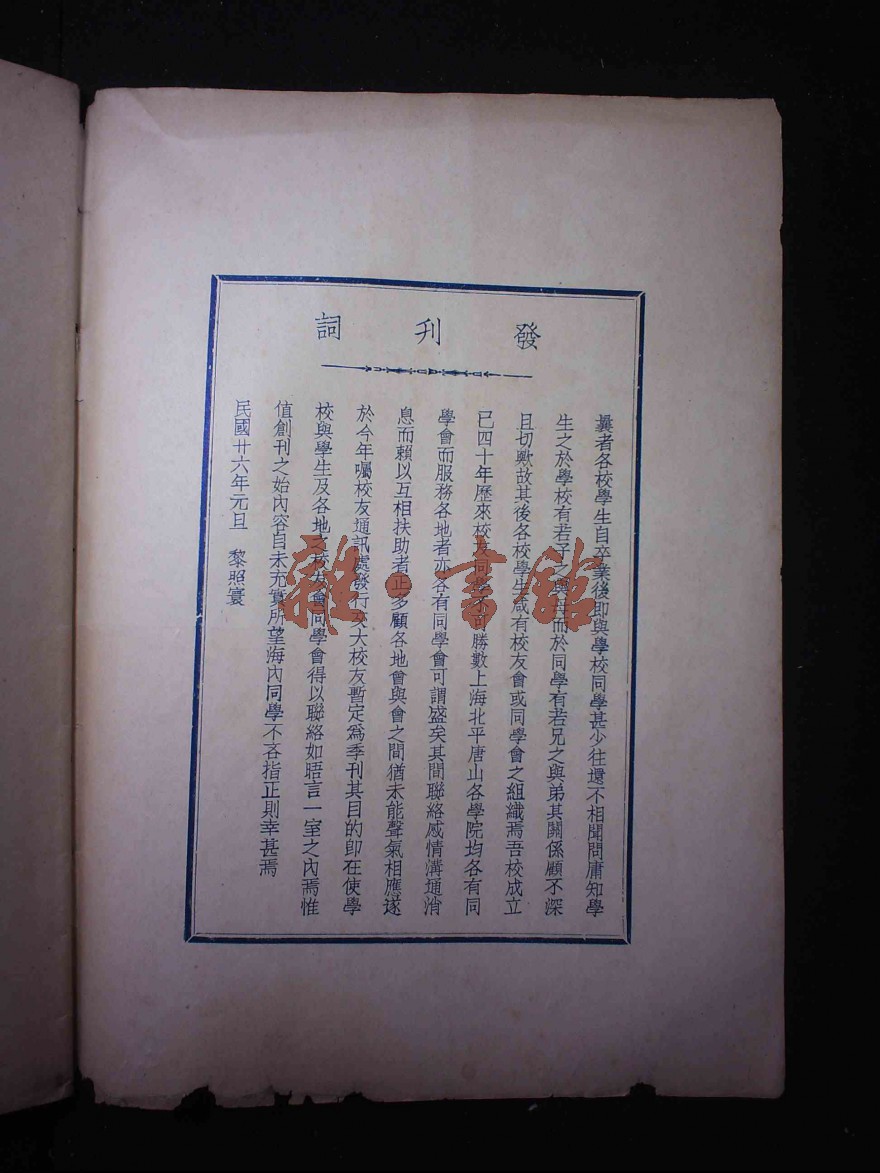 發刊詞
曩者各校學生自卒業後即與學校同學甚少往還不相聞問庸知學
生之於學校有若子之與母而於同學有若兄之與弟其關係顧不深
且切歟故其後各校學生咸有校友會或同學會之組織焉吾校成立
已四十年歷來校友同學不可勝數上海北平唐山各學院均各有同
學會而服務各地者亦各有同學會可謂盛矣其間聯絡感情溝通消
息而賴以互相扶助者正多顧各地會與會之間猶未能聲氣相應遂
於今年囑校友通訊處發行交大校友暫定爲季刊其目的卽在使學
校與學生及各地之校友會同學會得以聯絡如晤言一室之內焉惟
值創刊之始內容自未充實所望海內同學不吝指正則幸甚焉
民國廿六年元旦 黎照寰
雜·書館